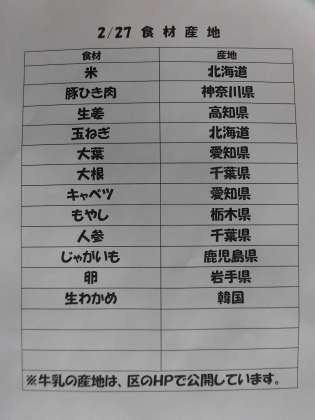 2/27 食材産地
食材 産地
米 北海道
豚ひき肉 神奈川県
生姜 高知県
玉ねぎ 北海道
大葉 愛知県
大根 千葉県
キャベツ 愛知県
もやし 栃木県
人参 千葉県
じゃがいも 鹿児島県
卵 岩手県
生わかめ 韓国
※牛乳の産地は、区のHPで公開しています。